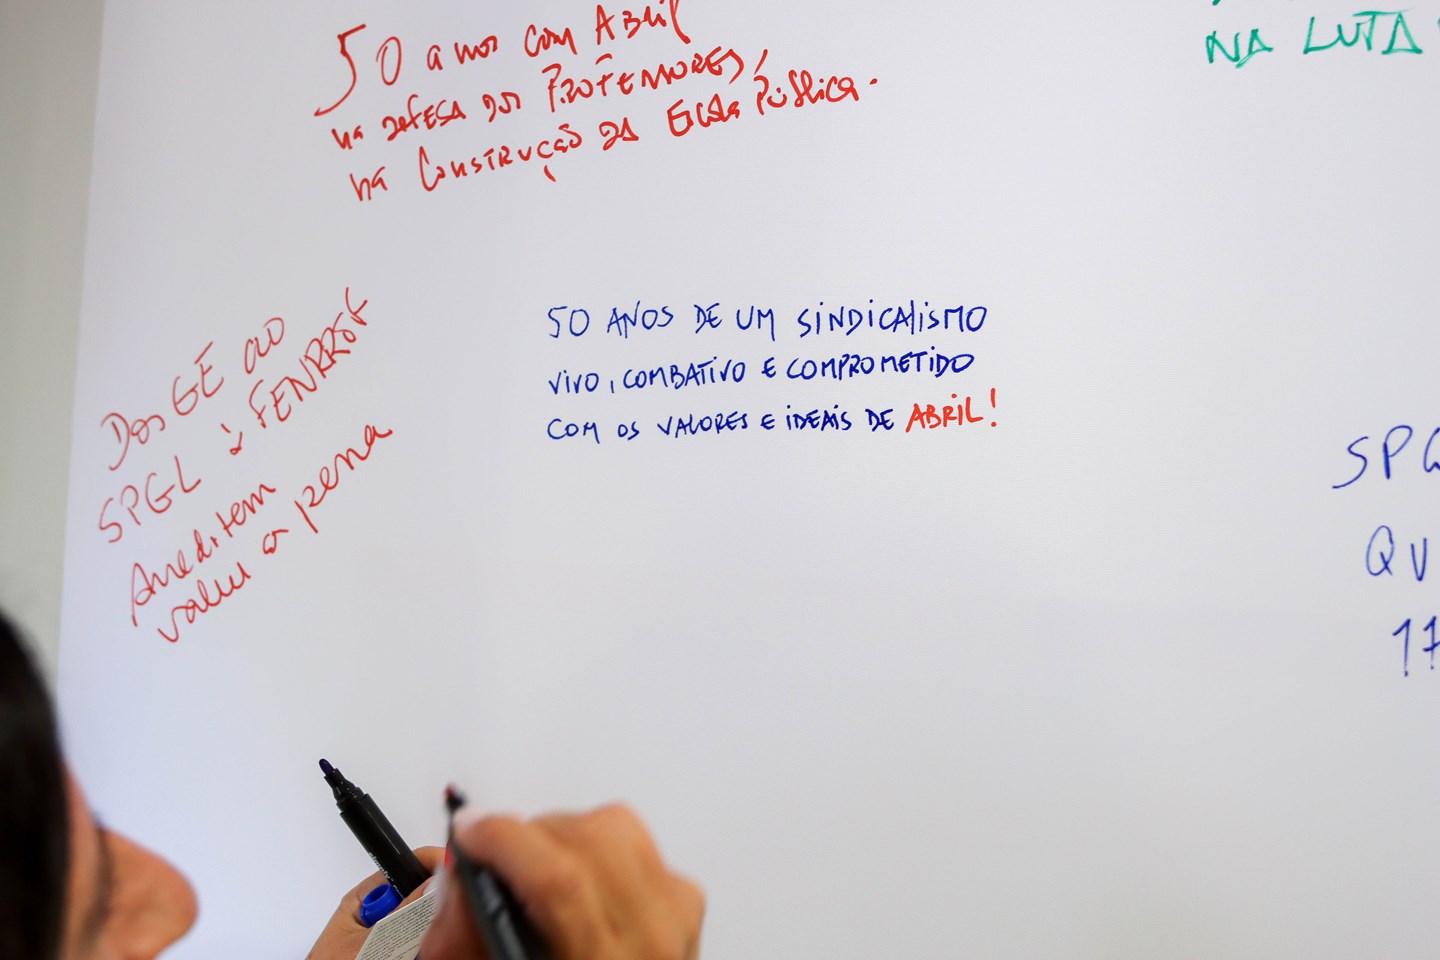 50 anos com Abril
na defesa dos PROFESSORES,
na Construção da Escola Pública.
NA LUTA
Dos GE ao
SPGL à FENPROF
Acreditem
valeu a pena
50 ANOS DE UM SINDICALISMO
VIVO, COMBATIVO E COMPROMETIDO
COM OS VALORES E IDEAIS DE ABRIL!
SPG
QU
17